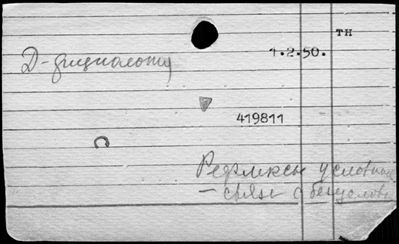 ТН
1.2.50.
419811
Рефлексы условные
– связь с безуслов